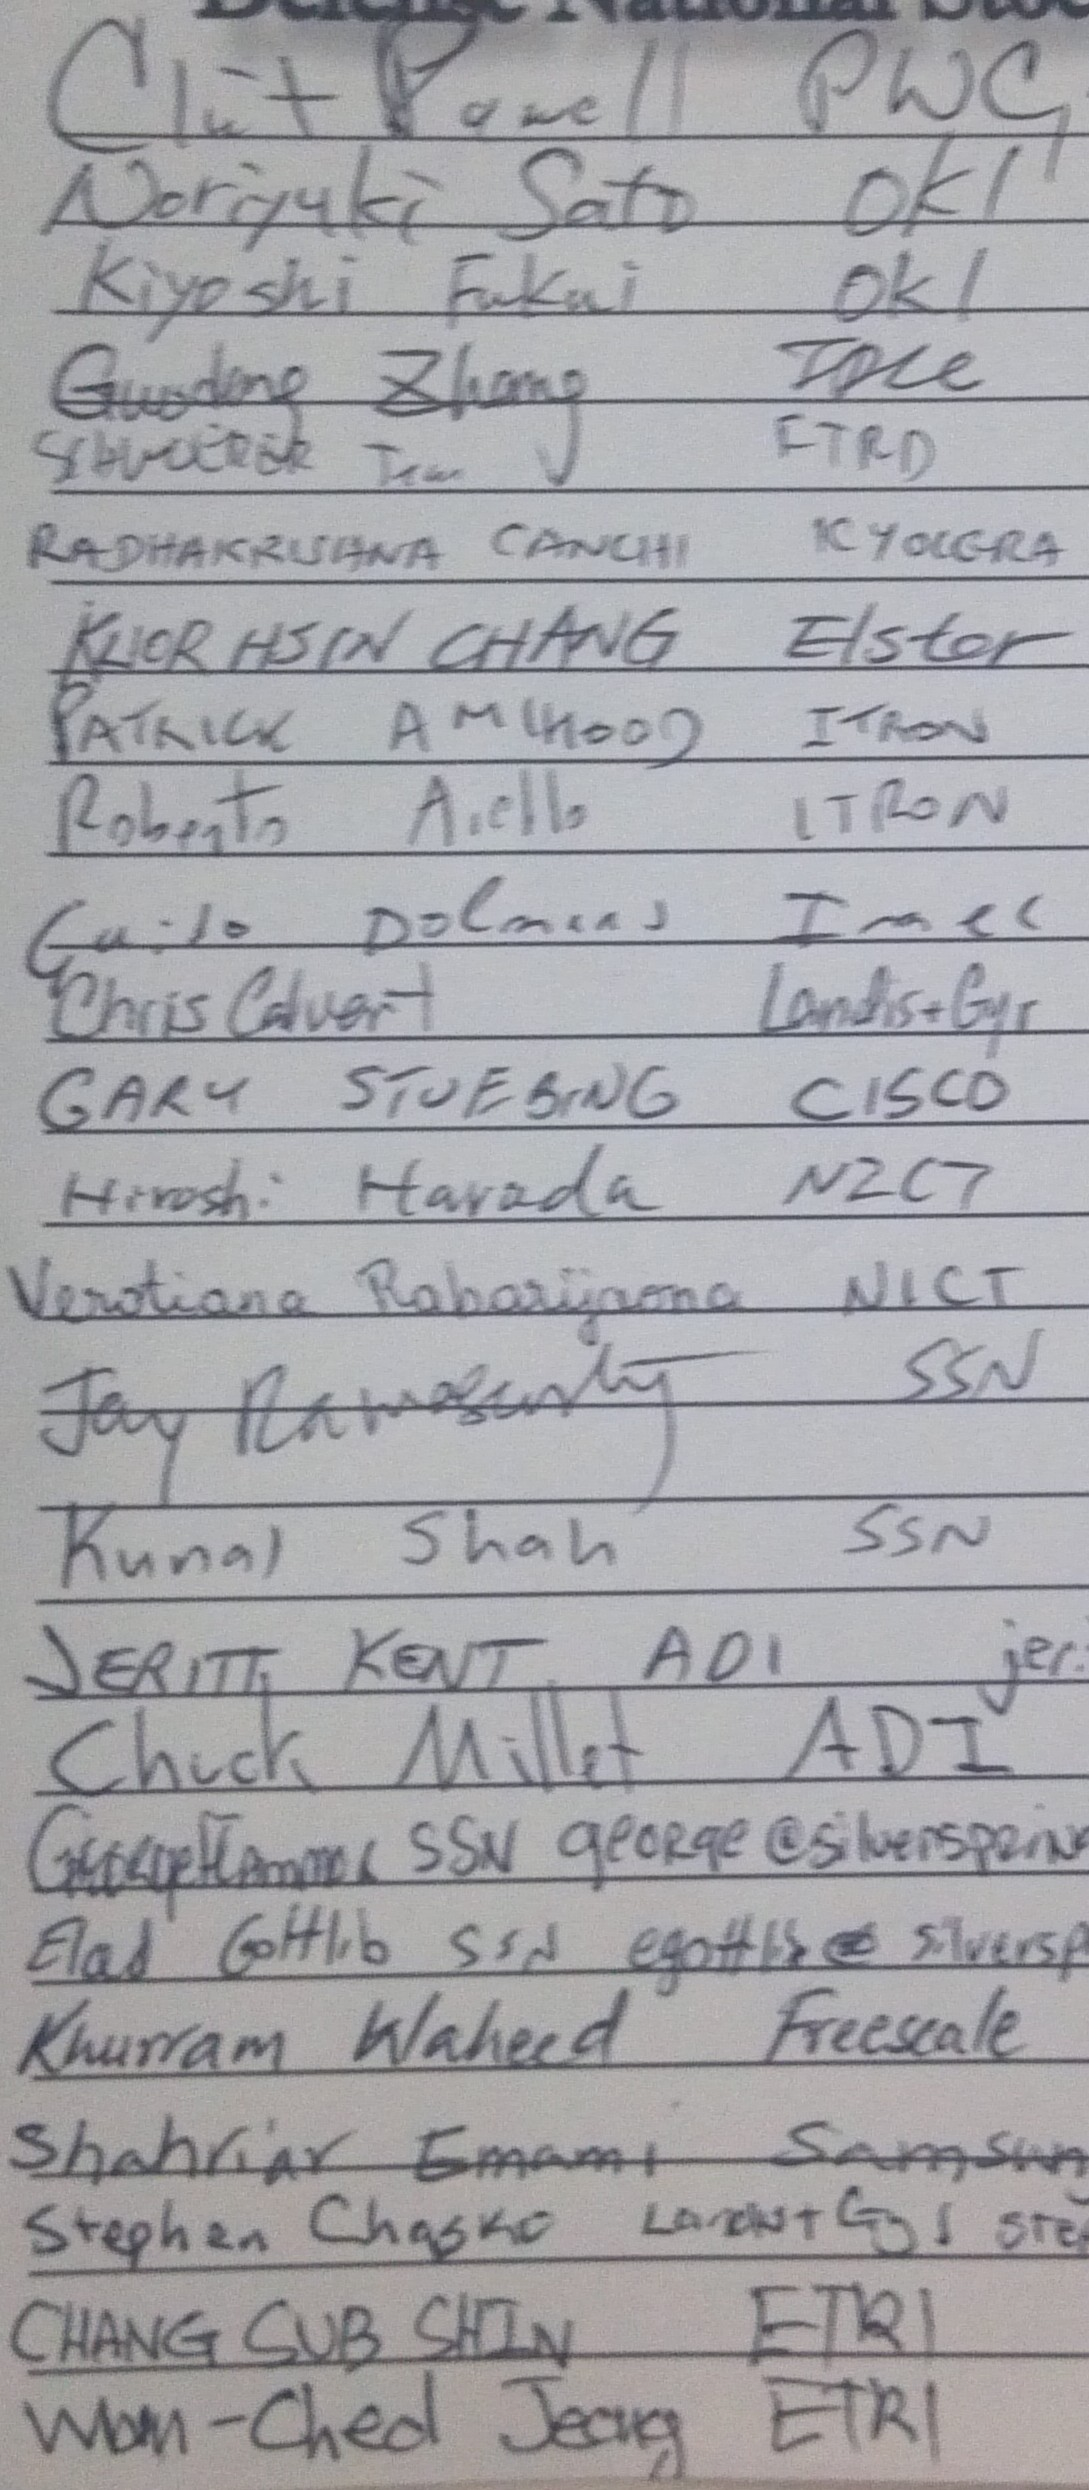 Defense National Stoc
Clint Powell PWC
Noriyuki Sato OKI
Kiyoshi Fukui OKI
Guodong Zhang IDCC
FTRD
RADHAKRISHNA CANCHI KYOCERA
KUOR HSIN CHANG Elster
PATRICK AMIHOOD ITRON
Roberto Aiello ITRON
Guido Dolmans Imec
Chris Calvert Landis+Gyr
GARY STUEBING CISCO
Hiroshi Harada NICT
Verotiana Rabarijaona NICT
Jay Ramasastry SSN
Kunal Shah SSN
JERITT KENT ADI jer
Chuck Millet ADI
George SSN george@silverspring
Elad Gottlib SSN egottlib@silversp
Khurram Waheed Freescale
Shahriar Emami Samsun
Stephen Chasko Landis+Gyr ste
CHANG SUB SHIN ETRI
Jeong ETRI